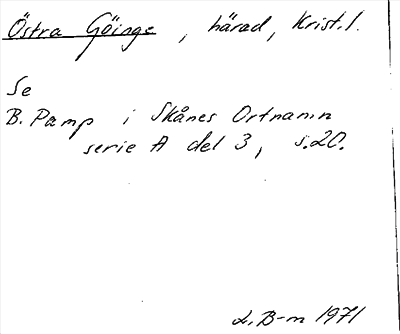 Östra Göinge, härad, Krist. l.
Se
B. Pamp i Skånes Ortnamn
serie A del 3, s. 20.
L. B-m 1971